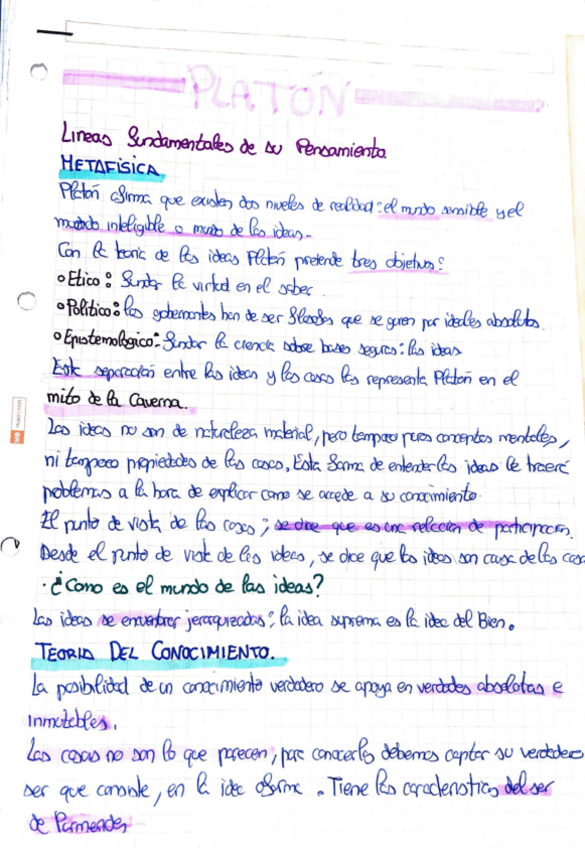 PLATÓN
Lineas fundamentales de su Pensamiento
METAFÍSICA
Platón afirma que existen dos niveles de realidad: el mundo sensible y el
mundo inteligible o mundo de las ideas.
Con la teoría de las ideas Platón pretende tres objetivos:
Etico: fundar la virtud en el saber.
Político: los gobernantes han de ser filósofos que se guren por ideales absolutos.
Epistemologico: fundar la ciencia sobre bases seguras: las ideas
Esta separación entre las ideas y las cosas las representa Platón en el
mito de la Caverna.
Las ideas no son de naturaleza material, pero tampoco puros conceptos mentales,
ni tampoco propiedades de las cosas. Esta forma de entender las ideas le traerá
problemas a la hora de explicar como se accede a su conocimiento.
El punto de vista de las cosas; se dice que es una relación de participación.
Desde el punto de vista de las ideas, se dice que las ideas son causa de las cosa
· ¿Como es el mundo de las ideas?
Las ideas se encuentran jerarquizadas: la idea suprema es la idea del Bien.
TEORIA DEL CONOCIMIENTO.
La posibilidad de un conocimiento verdadero se apoya en verdades absolutas e
inmutables.
Las cosas no son lo que parecen, para conocerlas debemos captar su verdadero
ser que consiste, en la idea o forma. Tiene las caracteristicas del ser
de Parmenides